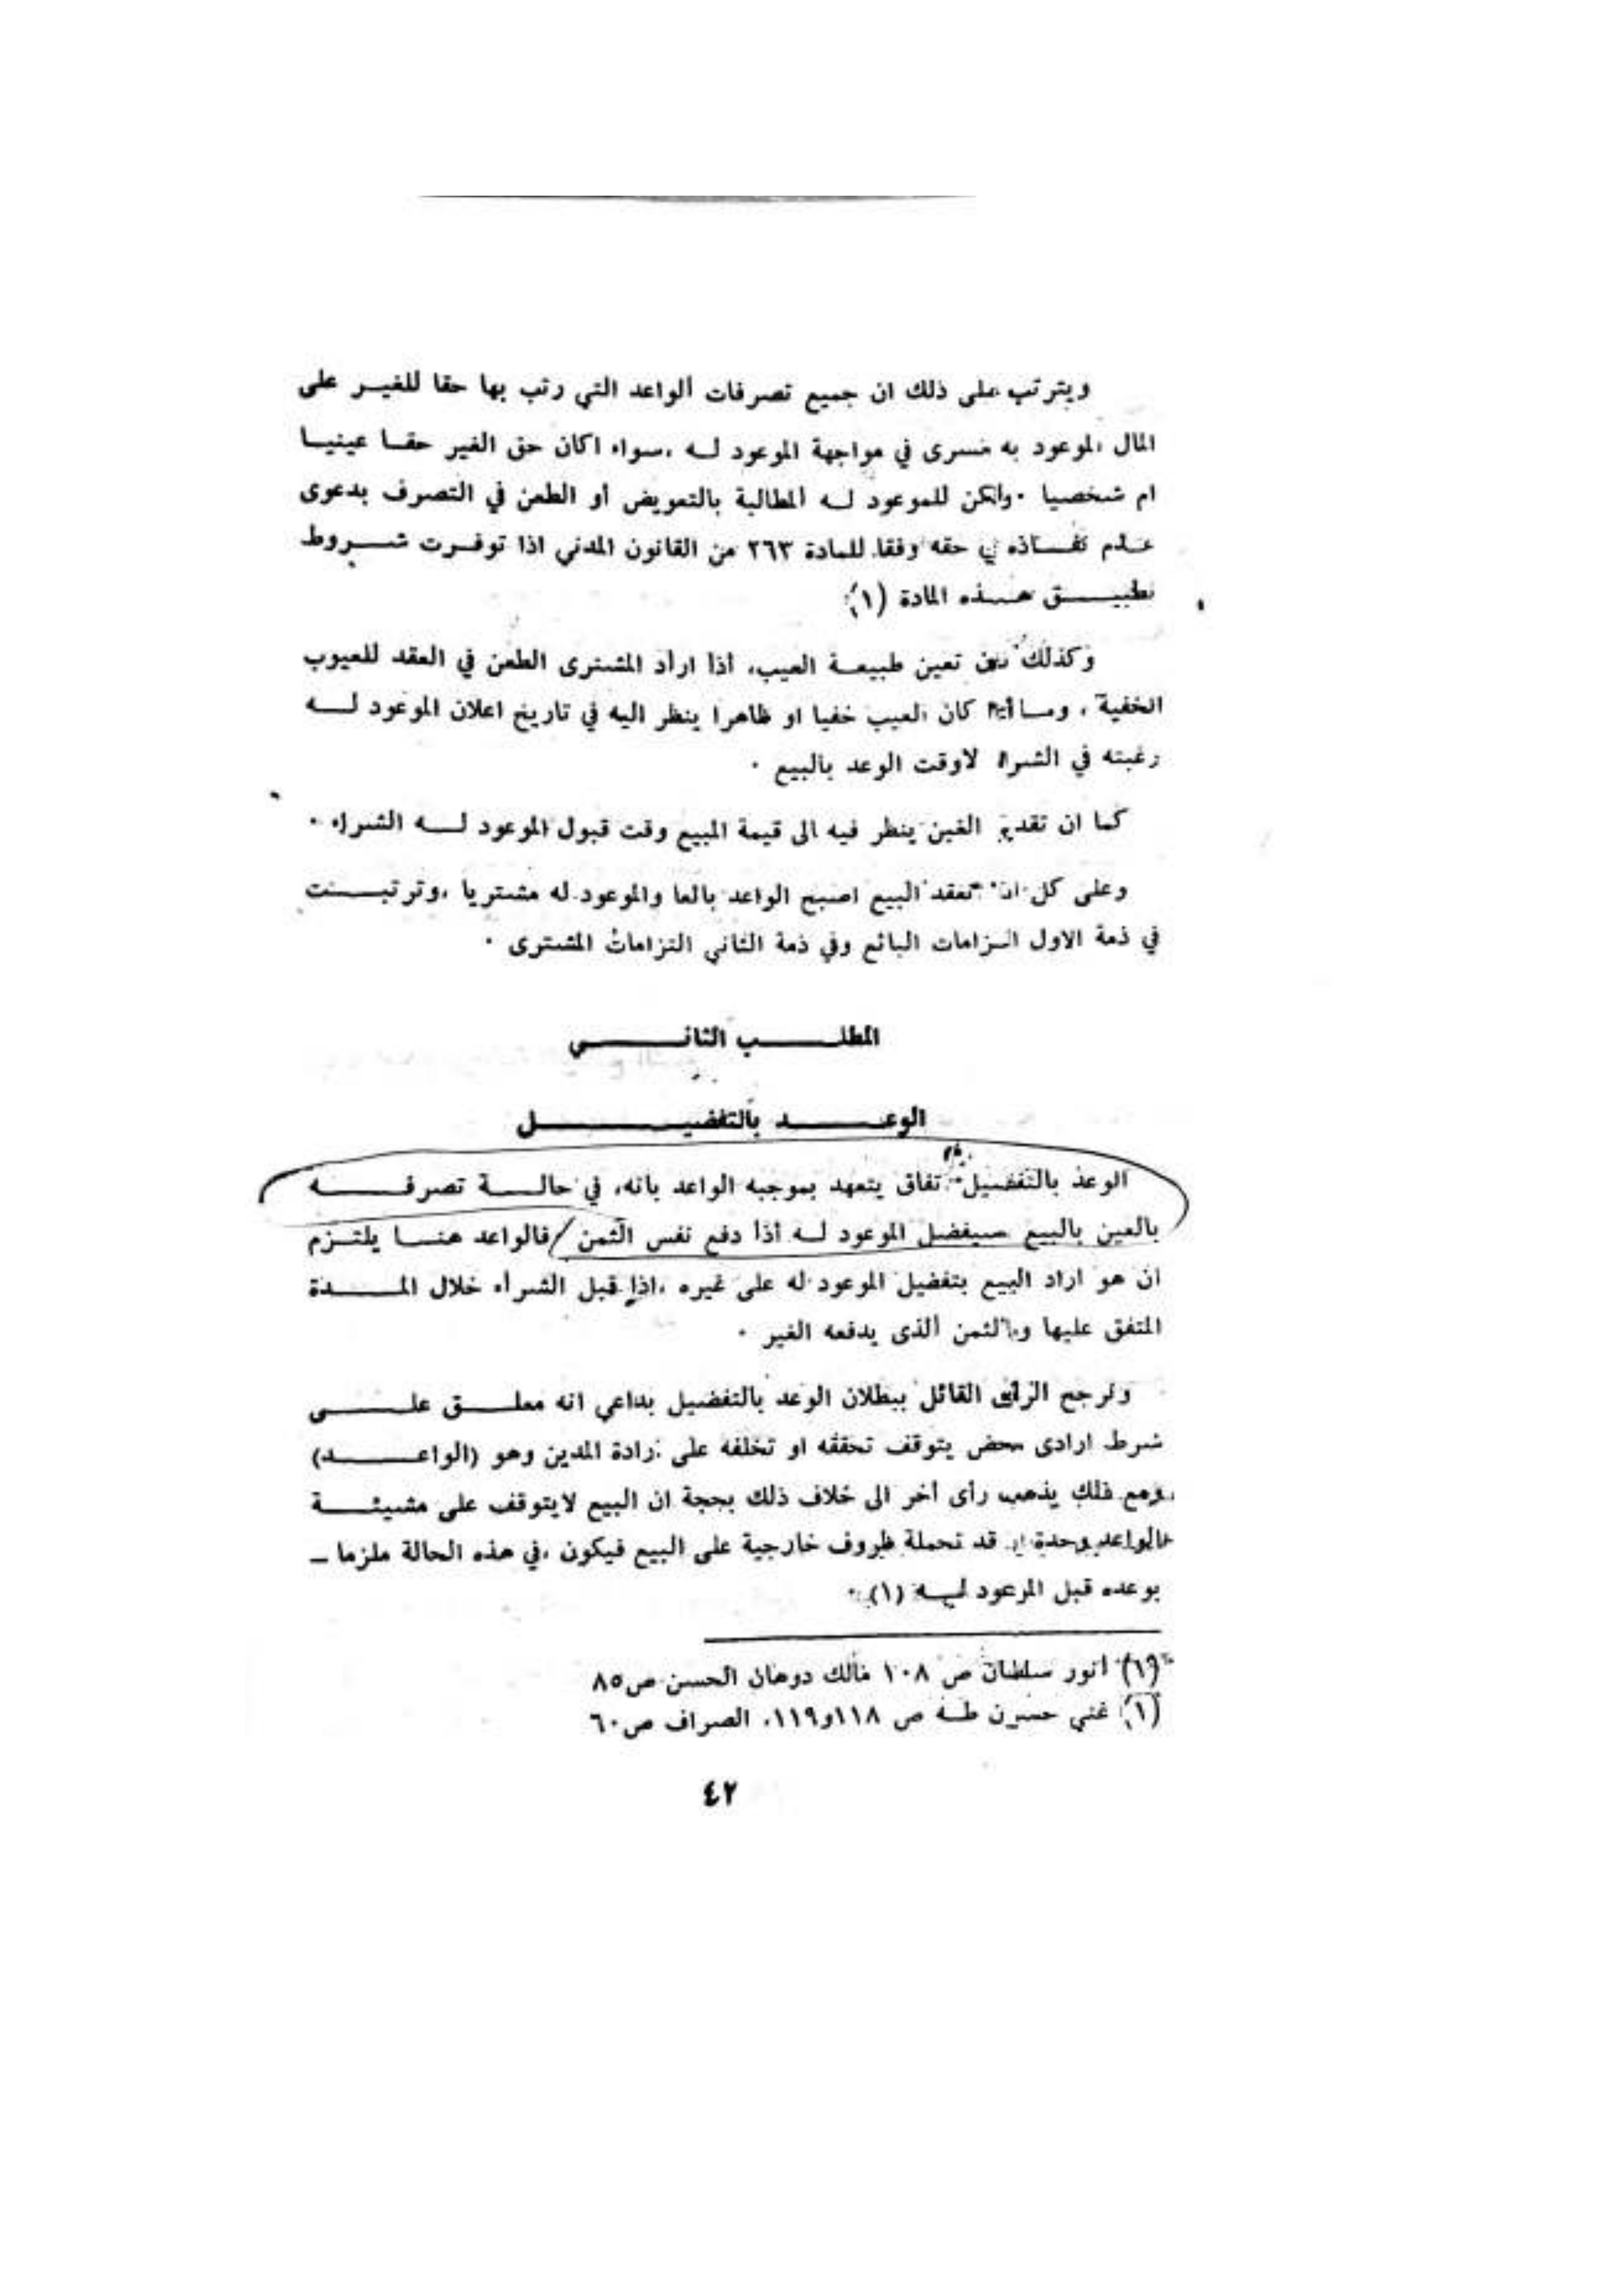 ويترتب على ذلك ان جميع تصرفات الواعد التي رتب بها حقا للغير على
المال الموعود به تسرى في مواجهة الموعود له ،سواء اكان حق الغير حقا عينيا
ام شخصيا ٠ولكن للموعود له المطالبة بالتعويض أو الطعن في التصرف بدعوى
عدم نفاذه في حقه وفقا للمادة ٢٦٣ من القانون المدني اذا توفرت شروط
تطبيق هذه المادة (١)
وكذلك تعين طبيعة العيب، اذا اراد المشترى الطعن في العقد للعيوب
الخفية ، وما كان العيب خفيا او ظاهرا ينظر اليه في تاريخ اعلان الموعود له
رغبته في الشراء لاوقت الوعد بالبيع ٠
كما ان تقدير الغبن ينظر فيه الى قيمة المبيع وقت قبول الموعود له الشراء ٠
وعلى كل انعقد البيع اصبح الواعد بائعا والموعود له مشتريا ،وترتبت
في ذمة الاول التزامات البائع وفي ذمة الثاني التزامات المشترى ٠
المطلب الثاني
الوعد بالتفضيل
الوعد بالتفضيل اتفاق يتعهد بموجبه الواعد بانه، في حالة تصرفه
بالعين بالبيع سيفضل الموعود له اذا دفع نفس الثمن / فالواعد هنا يلتزم
ان هو اراد البيع بتفضيل الموعود له على غيره ،اذا قبل الشراء خلال المدة
المتفق عليها وبالثمن الذى يدفعه الغير ٠
ونرجح الرأى القائل ببطلان الوعد بالتفضيل بداعي انه معلق على
شرط ارادى محض يتوقف تحققه او تخلفه على ارادة المدين وهو (الواعد)
ومع ذلك يذهب رأى أخر الى خلاف ذلك بحجة ان البيع لايتوقف على مشيئة
الواعد وحدة قد تحملة ظروف خارجية على البيع فيكون ،في هذه الحالة ملزما –
بوعده قبل الموعود له (١) ٠
(١) انور سلطان ص ١٠٨ مالك دوهان الحسن ص٨٥
(١) غني حسون طه ص ١١٨و١١٩، الصراف ص٦٠
٤٢